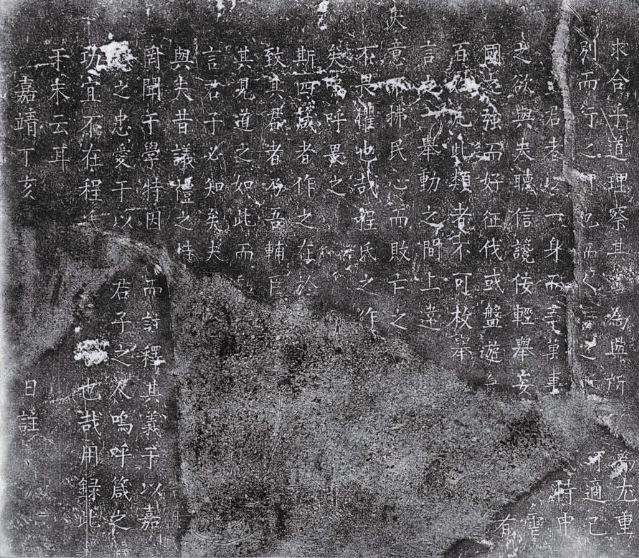 求合乎道理察其當為與所 尤重
别而行之可也而 言之 可適己
君者以一身而主萬事 時中
之欲與夫聽信讒佞輕舉妄
國之強而好征伐或盤遊 有
百凡此類者不可枚舉
言之舉動之間上違
天意下拂民心而敗亡之
不畏懼也哉程氏之作
矣嗚呼畏之
斯四箴者作之在於
致其君者乃吾輔臣
其見道之如此而
言君子必知矣夫
與夫昔議禮之時
爾聞于學特因 而註釋其義于以嘉
之忠愛于以 君子之人嗚呼箴之
功宜不在程 也哉用録此
于末云耳
嘉靖丁亥 日註